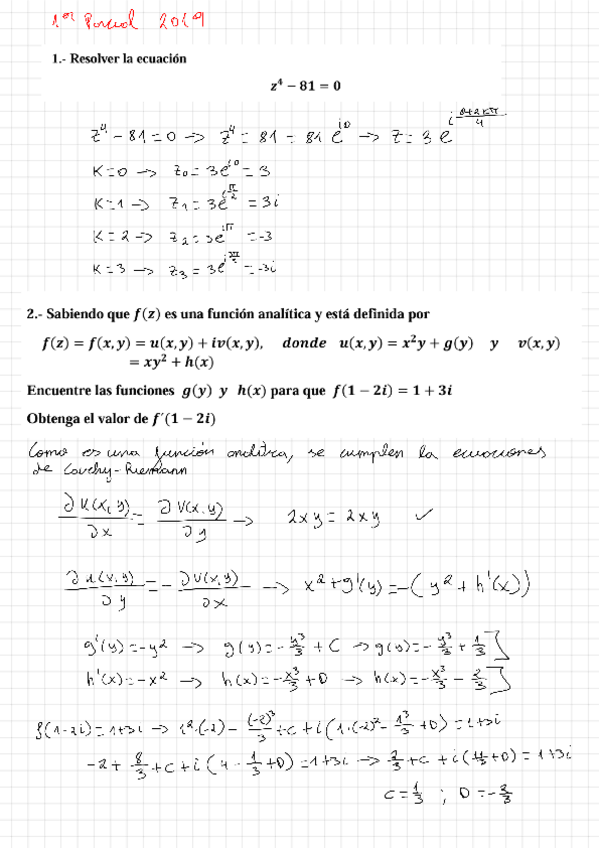 1er Parcial 2019
1.- Resolver la ecuación
z⁴ − 81 = 0
z⁴ − 81 = 0 → z⁴ = 81 = 81 e^{i0} → z = 3 e^{i (0+2kπ)/4}
K=0 → z₀ = 3e^{i0} = 3
K=1 → z₁ = 3e^{iπ/2} = 3i
K=2 → z₂ = 3e^{iπ} = -3
K=3 → z₃ = 3e^{i3π/2} = -3i
2.- Sabiendo que f(z) es una función analítica y está definida por
f(z) = f(x, y) = u(x, y) + iv(x, y), donde u(x, y) = x²y + g(y) y v(x, y)
= xy² + h(x)
Encuentre las funciones g(y) y h(x) para que f(1 − 2i) = 1 + 3i
Obtenga el valor de f´(1 − 2i)
Como es una función analítica, se cumplen la ecuaciones
de Cauchy-Riemann
∂u(x,y)/∂x = ∂v(x,y)/∂y → 2xy = 2xy ✓
∂u(x,y)/∂y = -∂v(x,y)/∂x → x² + g'(y) = -(y² + h'(x))
g'(y) = -y² → g(y) = -y³/3 + C → g(y) = -y³/3 + 1/3
h'(x) = -x² → h(x) = -x³/3 + D → h(x) = -x³/3 - 2/3
f(1-2i) = 1+3i → 1²·(-2) - (-2)³/3 + C + i(1·(-2)² - 1³/3 + D) = 1+3i
-2 + 8/3 + C + i(4 - 1/3 + D) = 1+3i → 2/3 + C + i(11/3 + D) = 1+3i
C = 1/3 ; D = -2/3